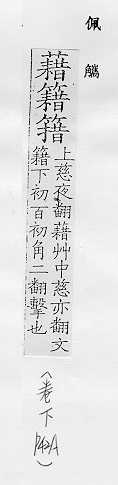 佩觿
藉籍簎
上慈夜翻藉艸中慈亦翻文
籍下初百初角二翻擊也
(卷下
P42A)